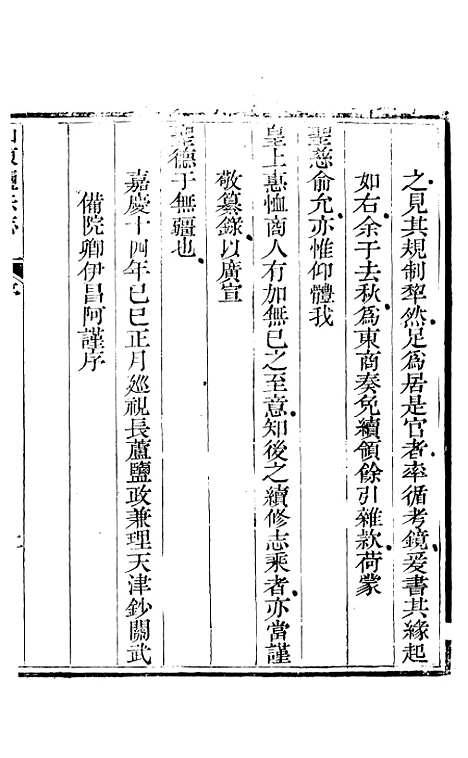 之見其規制犂然足爲居是官者率循考鏡爰書其緣起
如右余于去秋爲東商奏免續領餘引雜款荷蒙
聖慈俞允亦惟仰體我
皇上惠恤商人有加無已之至意知後之續修志乘者亦當謹
敬纂錄以廣宣
聖德于無疆也
嘉慶十四年己巳正月廵視長蘆鹽政兼理天津鈔關武
備院卿伊昌阿謹序
序